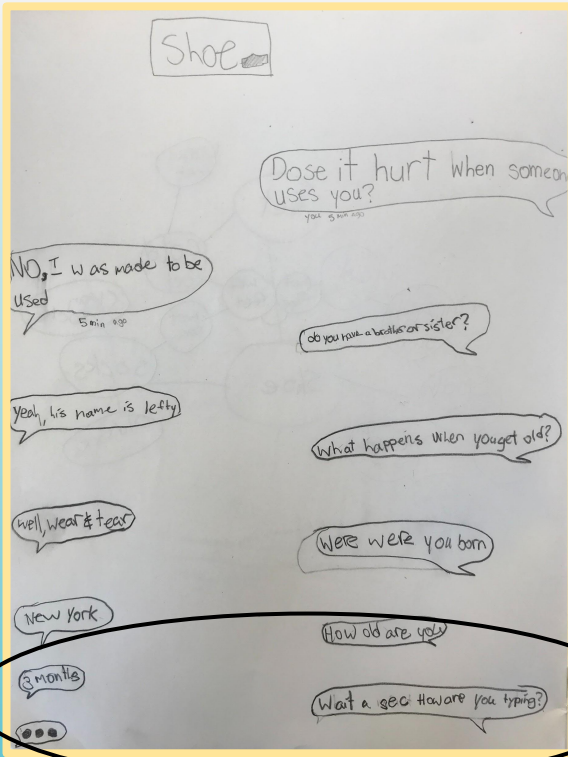 Shoe
Dose it hurt when someon
uses you?
you 5 min ago
NO, I was made to be
used
5 min ago
do you have a brother or sister?
Yeah, his name is lefty
What happens when you get old?
well, wear & tear
Were were you born
New York
How old are you
3 months
Wait a sec How are you typing?
•••